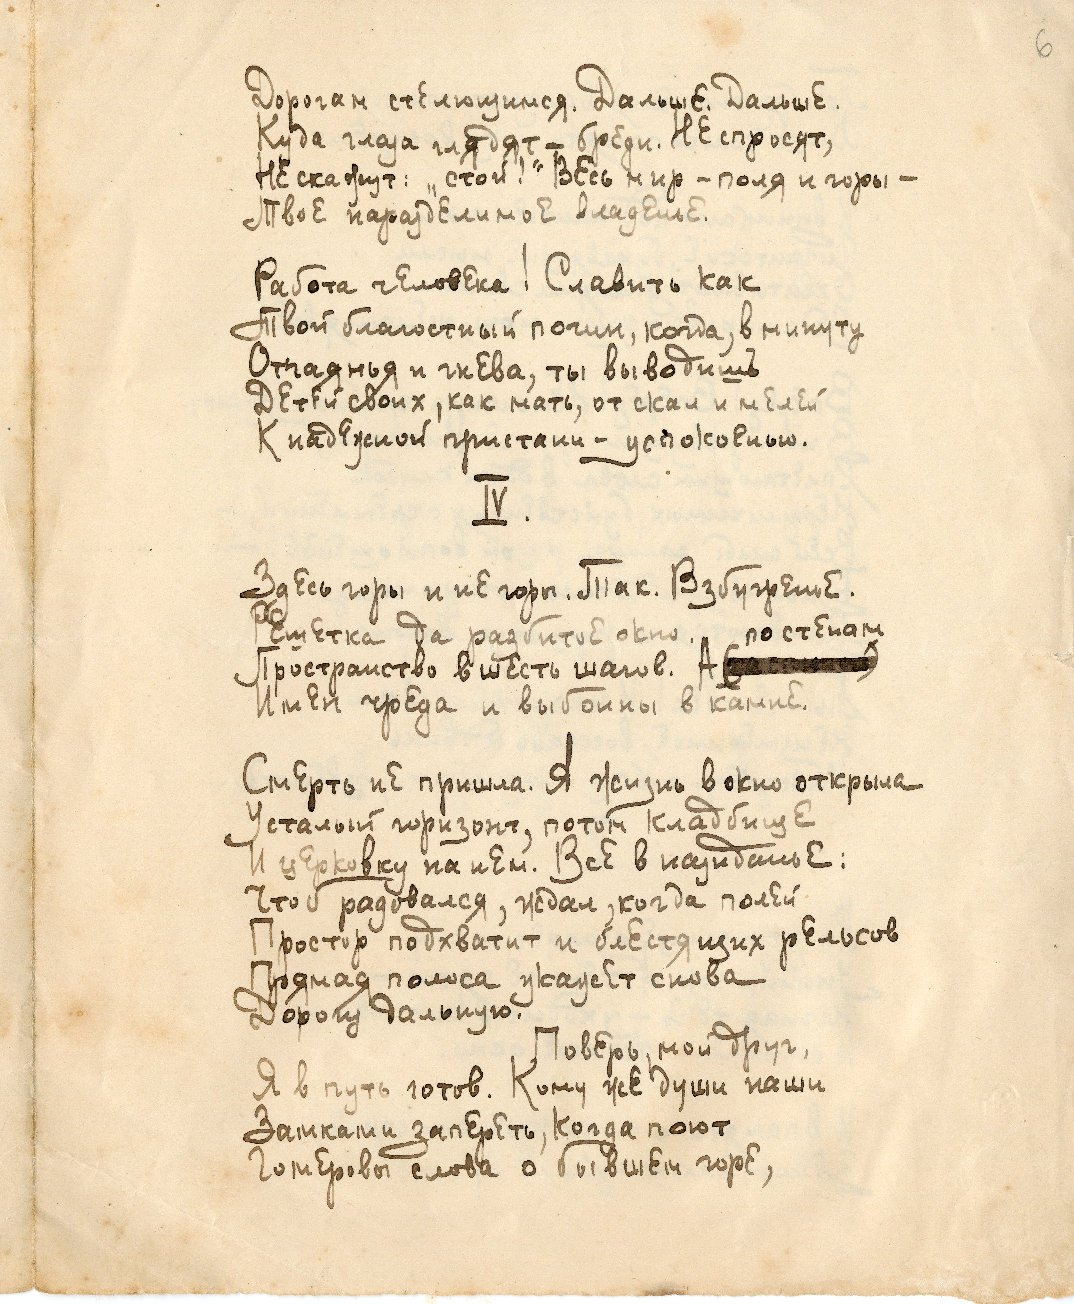 6
Дорогам стелющимся. Дальше. Дальше.
Куда глаза глядят – бреди. Не спросят,
Не скажут: „стой!“ Весь мир – поля и горы –
Твое нераздЕлимое владенье.
Работа человека! Славить как
Твой благостный почин, когда, в минуту
Отчаянья и гнева, ты выводишь
Детей своих, как мать, от скал и мелей
К надежной пристани – успокоенью.
IV.
Здесь горы и не горы. Так. Взбугренье.
Решетка да разбитое окно.
по стенам
Пространство в шесть шагов. А
Имен чреда и выбоины в камне.
Смерть не пришла. Я жизнь в окно открыла
Усталый горизонт, потом кладбище
И церковку на нем. Все в назиданье:
Чтоб радовался, ждал, когда полей
Простор подхватит и блестящих рельсов
Прямая полоса укажет снова
Дорогу дальную.
Поверь, мой друг,
Я в путь готов. Кому же души наши
Замками запереть, когда поют
Гомеровы слова о бывшем горе,